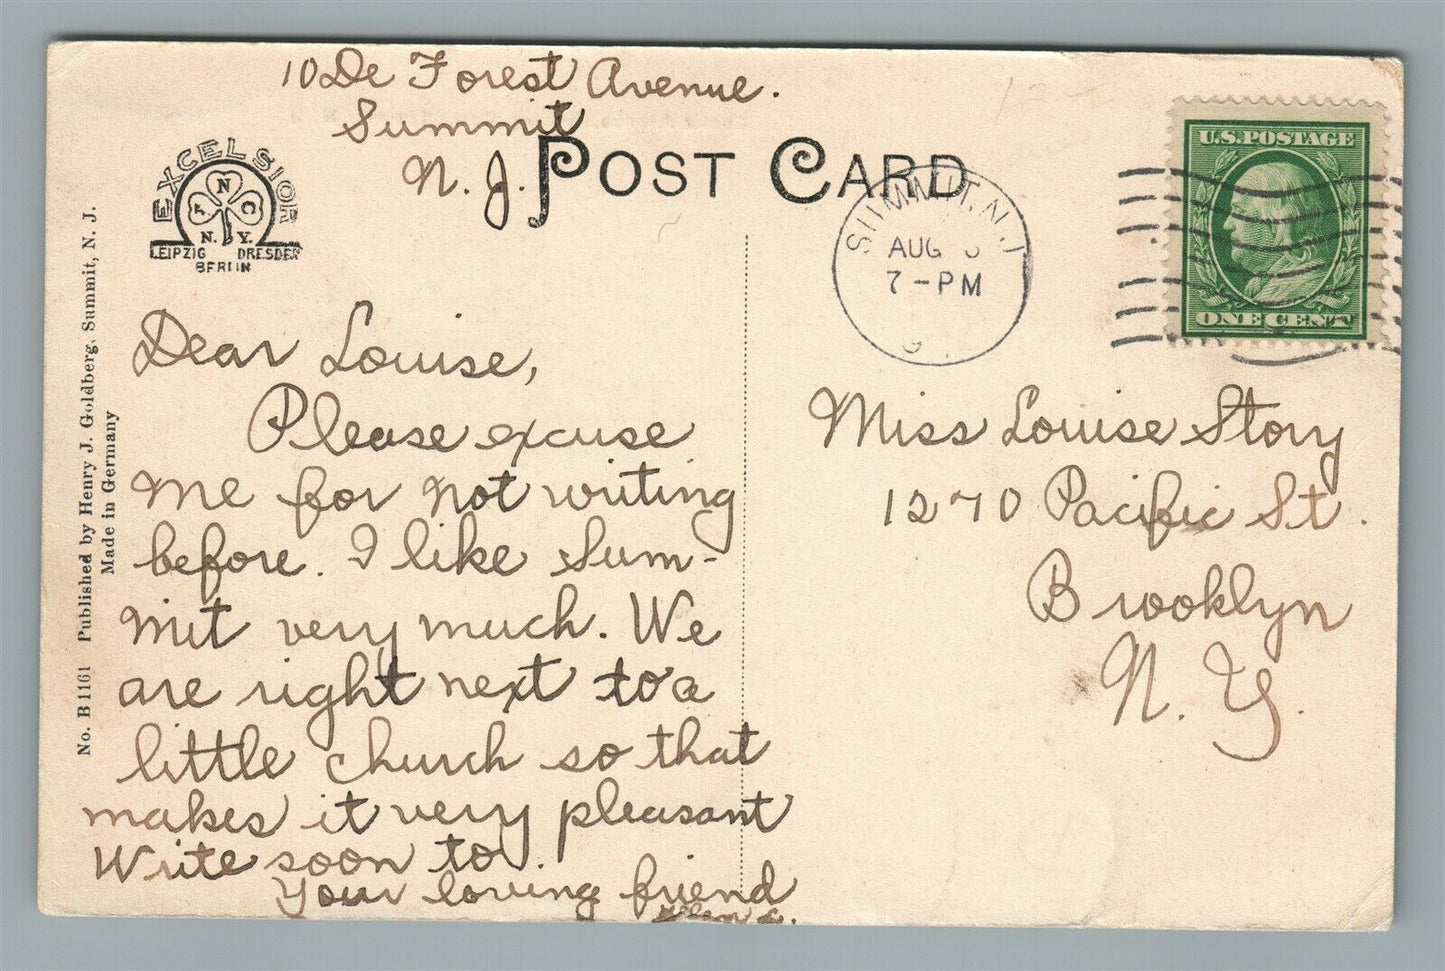 10 De Forest Avenue.
Summit
N. J.
POST CARD
EXCELSIOR
N
C
N. Y.
LEIPZIG DRESDEN
BERLIN
SUMMIT, N.J.
AUG
7-PM
U.S. POSTAGE
ONE CENT
No. B 1161 Published by Henry J. Goldberg, Summit, N. J.
Made in Germany
Dear Louise,
Please excuse
me for not writing
before. I like Sum-
mit very much. We
are right next to a
little church so that
makes it very pleasant
Write soon to
Your loving friend
Miss Louise Story
1270 Pacific St.
Brooklyn
N. Y.